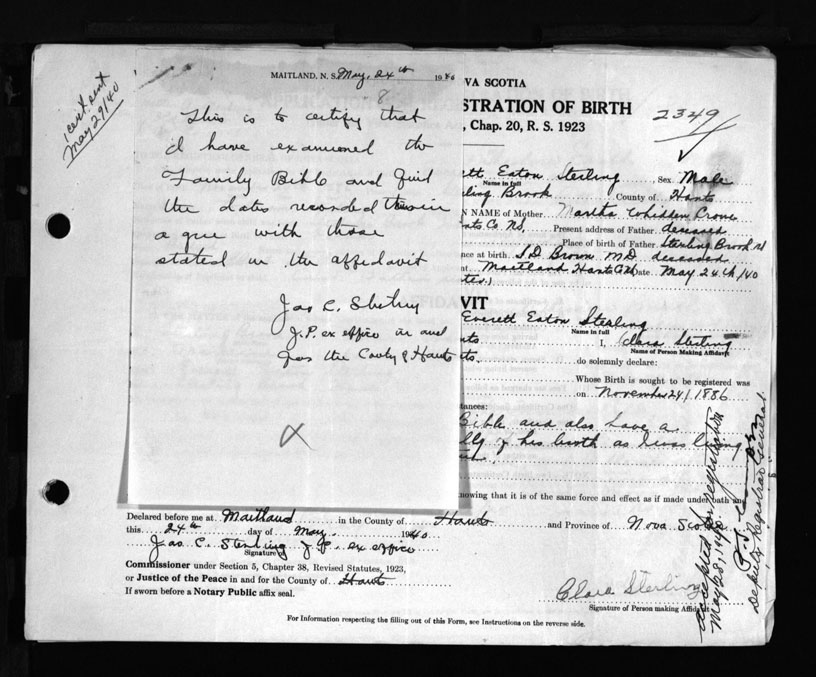 1 cert. sent
May 29/40
MAITLAND, N. S. May, 24th 1940
8
This is to certify that
I have examioned the
Family Bible and find
the dates recorded therein
a gree with those
stated in the affidavit
Jas C. Sterling
J.P. ex officio in and
for the County of Hants
VA SCOTIA
STRATION OF BIRTH
, Chap. 20, R. S. 1923
2349
ett Eaton Sterling Sex Male
Name in full
ling Brook County of Hants
N NAME of Mother Martha Whidden Crowe
nts Co NS, Present address of Father deceased
Place of birth of Father Sterling Brook
nce at birth S D Brown M D deceased
at Maitland Hants Co Date May 24th/40
tes.)
VIT
Everett Eaton Sterling
Name in full
nts I, Clara Sterling
Name of Person Making Affidavit
ts. do solemnly declare:
Whose Birth is sought to be registered was
on November 24/1886
tances:
Bible and also have a
lly of his birth as I was living
nowing that it is of the same force and effect as if made under oath
Declared before me at Maitland in the County of Hants and Province of Nova Scotia
this 24th day of May. 1940
Jas C. Sterling J.P. ex officio
Signature of
Commissioner under Section 5, Chapter 38, Revised Statutes, 1923,
or Justice of the Peace in and for the County of Hants
If sworn before a Notary Public affix seal.
Clara Sterling
Signature of Person making Affidavit
For Information respecting the filling out of this Form, see Instructions on the reverse side.
Accepted for registration
May 28, 1940
Deputy Registrar General